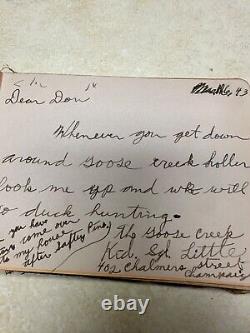 43
Dear Don
Whenever you get down
around Goose creek holler
look me up and we will
go duck hunting.
The Goose Creek
Kid. Little
402 Chalmers street
Champaign
you have
come over
to my house
after